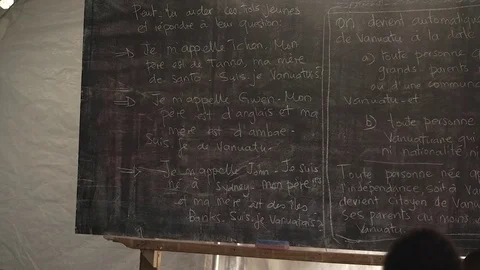 Peut-tu aider ces trois jeunes
et répondre à leur question.
Je m'appelle Tchon. Mon
père est de Tanna, ma mère
de Santo. Suis-je Vanuatais?
Je m'appelle Gwen. Mon
père est d'anglais et ma
mère est d'ambae.
Suis-je de Vanuatu.
Je m'appelle John. Je suis
né à Sydney. Mon père
et ma mère est des îles
Banks. Suis-je Vanuatais?
On devient automatique
de Vanuatu à la date
a) Toute personne
grands parents
ou d'une commun
Vanuatu et
b) toute personne
Vanuatuane qui
ni nationalité ni
Toute personne née
l'indépendance, soit à V
devient citoyen de Vanua
ses parents au moins
Vanuatu